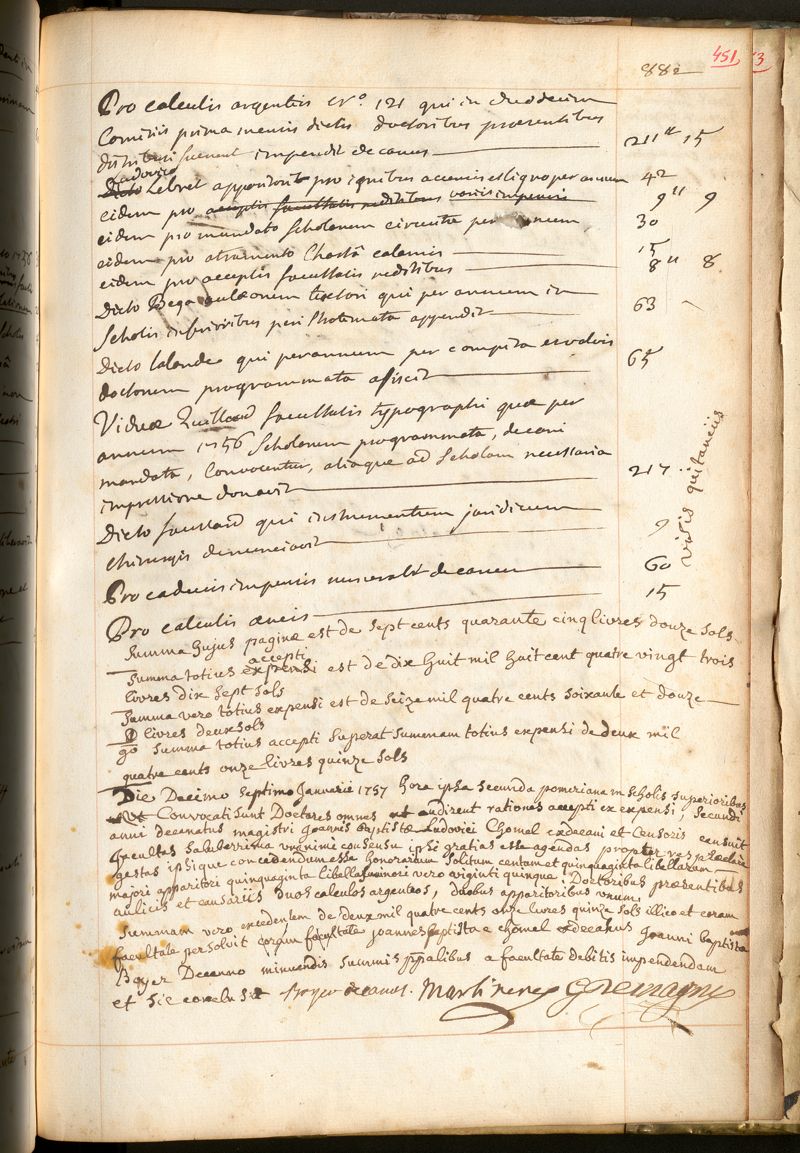 882
451
3
Pro calculis argenteis No. 121 qui in duodecim
Comitiis prima mensis dictis doctoribus præsentibus
distributi fuerunt impendit decanus 211 tt 15
Ludovico
Dicto Lebret apparitori pro ignibus accensis et ligno per annum 42
eidem pro acceptis facultatis reditibus variis impensis 9 tt 9
eidem pro mandato Scholarum circuitu per annum 30
eidem pro atramento Chartâ calamis 15
eidem pro acceptis facultatis reditibus 8 tt 8
Dicto Bega aulæorum textori qui per annum in
Scholis inferioribus peri appendit 63
Dicto Lalande qui per annum per compita et valvis
doctorum programmata afficit 65
Viduæ Quillau facultatis typographi quæ per
annum 1756 Scholarum programmata, decani
mandata, Convocentur, aliaque ad Scholam necessaria
impressione donavit 217
visis quitanciis
Dicto faussard qui instrumentum juridicum
chirurgis denunciavit 9
Pro caducis impensis numerabit decanus 60
Pro calculis æneis 15
Summa hujus paginæ est de sept cents quarante cinq livres douze sols
accepti
Summa totius expensi est de dix huit mil huit cent quatre vingt trois
livres dix sept sols
Summa vero totius expensi est de seize mil quatre cents soixante et douze
livres deux sols
go summa totius accepti superat summam totius expensi de deux mil
quatre cents onze livres quinze sols
Die Decimo septimo Januarii 1757 hora ipsa secunda pomeriana in scholis superioribus
Convocati sunt Doctores omnes ut audirent rationes accepti et expensi, secundi
anni decanatus magistri joannis baptistæ Ludovici Chomel exdecani et Censoris censuit
facultas saluberrima unanimi consensu ipsi gratias esse agendas propter res præclare
gestas ipsique concedendum esse honorarium solitum centum et quinquaginta libellarum
majori apparitori quinquaginta libellas minori vero viginti quinque, Doctoribus præsentibus
aulicis et causariis duos calculos argenteos, duobus apparitoribus unum.
Summam vero excedentem de deux mil quatre cents onze livres quinze sols illico et coram
facultate persolvit coram facultate joannes baptista Chomel exdecanus joanni baptista
Boyer Decano minuendis summis ppalibus a facultate debitis impendendam
et sic conclusit Boyer decanus. Martinenq